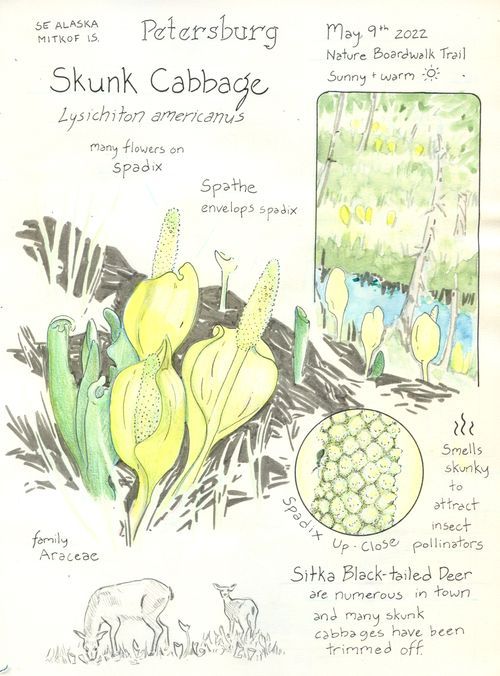 SE ALASKA
MITKOF IS.
Petersburg
May 9th 2022
Nature Boardwalk Trail
Sunny + warm
Skunk Cabbage
Lysichiton americanus
many flowers on
spadix
Spathe
envelops spadix
Smells
skunky
to
attract
insect
pollinators
Spadix
Up-Close
family
Araceae
Sitka Black-tailed Deer
are numerous in town
and many skunk
cabbages have been
trimmed off.